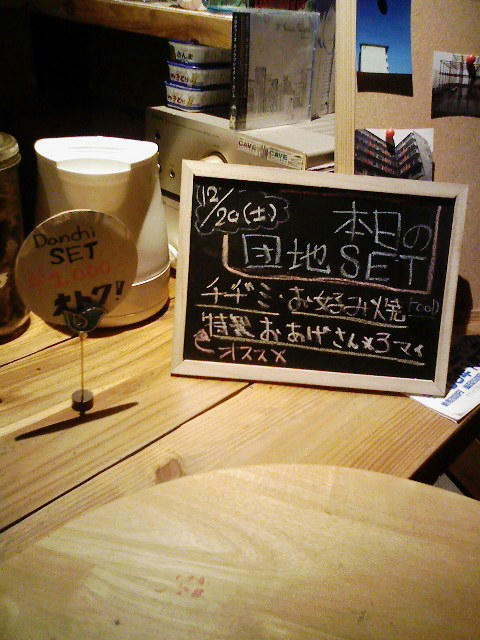 さんま
CAVE
CAVE
Danchi
SET
¥1,000
オトク!
12/20(土)
本日の
団地SET
チヂミ・お好み焼 FOOD
特製おあげさん
オススメ